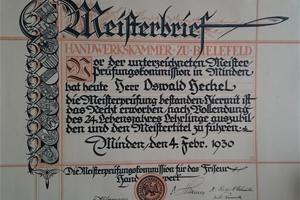 Meisterbrief
HANDWERKSKAMMER·ZU·BIELEFELD
Vor der unterzeichneten Meister=
Prüfungskommission in Minden
hat heute Herr Oswald Hechel
die Meisterprüfung bestanden. Hiermit ist
das Recht erworben, nach Vollendung
des 24. Lebensjahres Lehrlinge auszubil
den und den Meistertitel zu führen.
Minden, den 4. Febr. 1930
Die Meisterprüfungskommission für das Friseur=
Handwerk